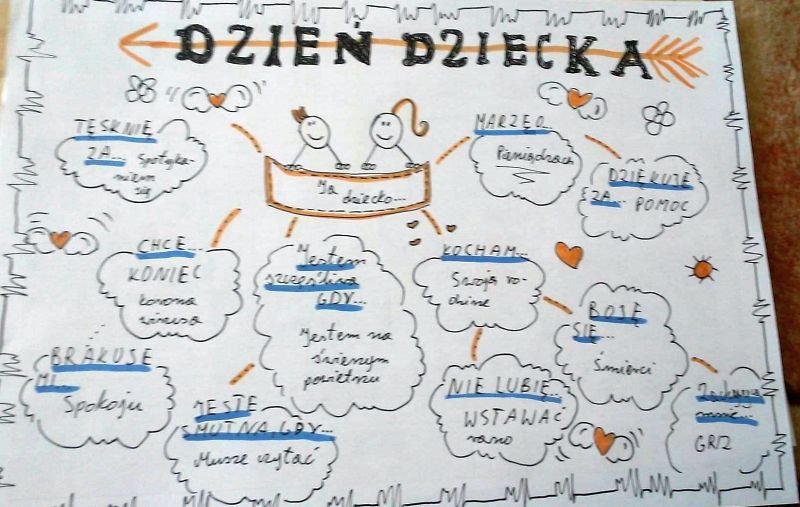 DZIEŃ DZIECKA
TĘSKNIĘ
ZA... Spotyka-
niem
się
Ja
dziecko...
MARZĘ O...
Pieniądzach
DZIĘKUJĘ
ZA... POMOC
CHCĘ...
KONIEC
korona
wirusa
Jestem
szczęśliwa
GDY...
Jestem na
świeżym
powietrzu
KOCHAM...
Swoją ro-
dzinę
BOJĘ
SIĘ...
Śmierci
BRAKUJE
MI...
Spokoju
JESTE
SMUTNA, GDY...
Muszę czytać
NIE LUBIĘ...
WSTAWAĆ
rano
mnie...